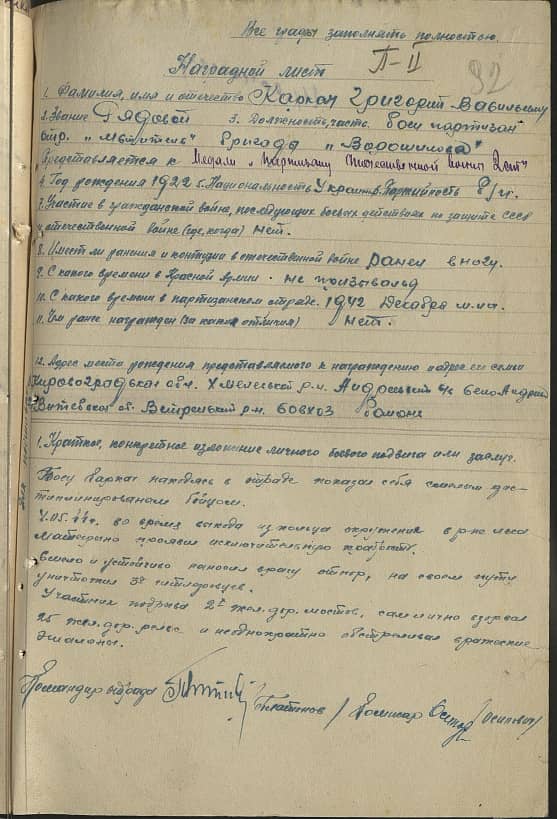 Все графы заполнять полностью.
П-II
92
Наградной лист
1. Фамилия, имя и отчество Каркач Григорий Вавильевич
2. Звание Рядовой 3. Должность, часть. боец партизан
отр. „Мститель" бригада „Ворошилова"
Представляется к Медали „Партизану Отечественной Войны 2 ст"
4. Год рождения 1922 г. Национальность Украин. Партийность б/п.
7. Участие в гражданской войне, последующих боевых действиях по защите СССР
и отечественной войне (где, когда) нет.
8. Имеет ли ранения и контузии в отечественной войне ранен в ногу.
9. С какого времени в Красной Армии. не призывался
10. С какого времени в партизанском отряде. 1942 Декабря м-ца.
11. Чем ранее награжден (за какие отличия) нет.
12. Адрес места рождения представляемого к награждению и адрес его семьи
Кировоградская обл. р-н.
Витебская об. Ветринский р-н. совхоз
1. Краткое, конкретное изложение личного боевого подвига или заслуг.
находясь в отряде показал себя смелым дис-
циплинированом бойцом.
05.44г. во время выхода из кольца окружения в р-не леса
проявил исключительную храбрость.
Смело и устойчиво наносил врагу отпор, на своем пути
уничтожил 3х гитлеровцев.
Участник подрыва 2х жел. дор. мостов, сам лично взорвал
25 жел. дор. рельс и неоднократно обстреливал вражеские
эшалоны.
Командир отряда /Платонов/ Комиссар /Осипович/